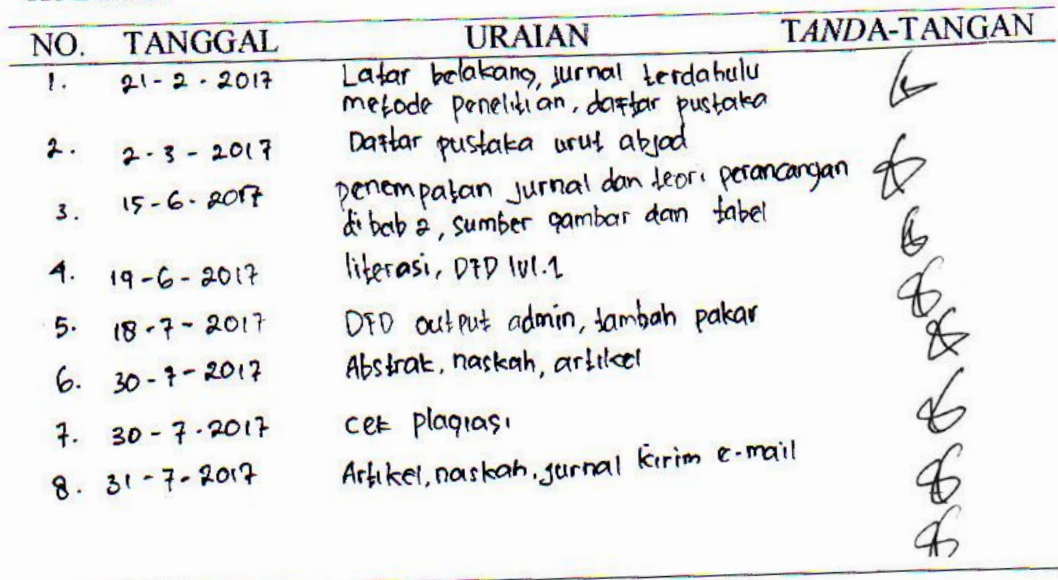 NO. TANGGAL URAIAN TANDA-TANGAN
1. 21-2-2017 Latar belakang, jurnal terdahulu
metode penelitian, daftar pustaka
2. 2-3-2017 Daftar pustaka urut abjad
3. 15-6-2017 penempatan jurnal dan teori perancangan
di bab 2, sumber gambar dan tabel
4. 19-6-2017 literasi, DFD lvl.1
5. 18-7-2017 DFD output admin, tambah pakar
6. 30-7-2017 Abstrak, naskah, artikel
7. 30-7-2017 cek plagiasi
8. 31-7-2017 Artikel, naskah, jurnal kirim e-mail